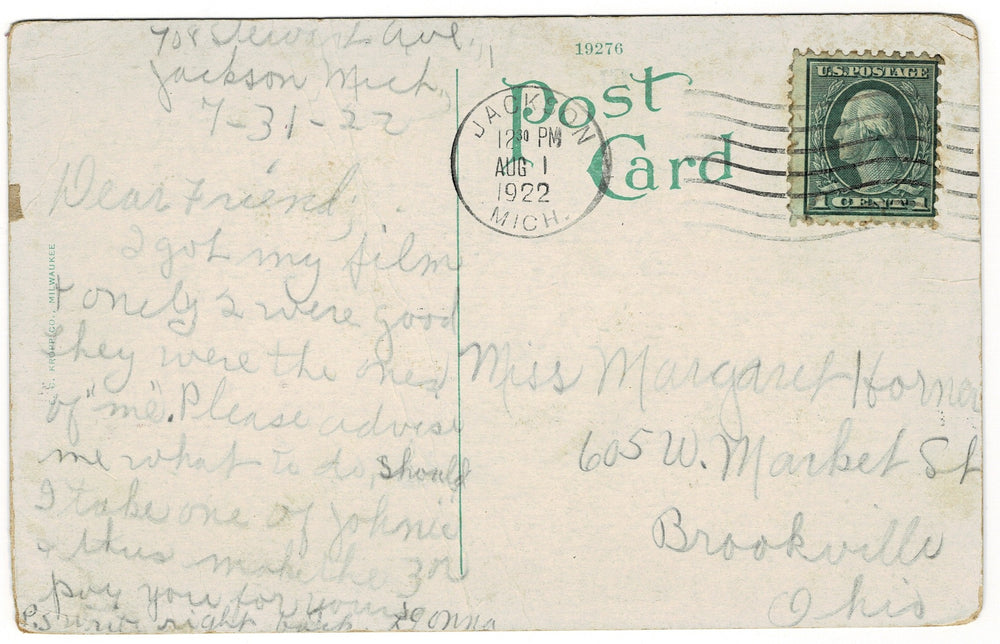 708 Stewart Ave.,
Jackson Mich,
7-31-22
Dear Friend,
I got my film
& onely 2 were good
they were the ones
of "me". Please advise
me what to do, should
I take one of Johnie
& thus make the 3 or
pay you for yours
P.S. write right back.
E. C. KROPP CO., MILWAUKEE
19276
Post
Card
JACKSON
12 30 PM
AUG 1
1922
MICH.
U.S. POSTAGE
1 CENT 1
Miss Margaret Horner
605 W. Market St
Brookville
Ohio